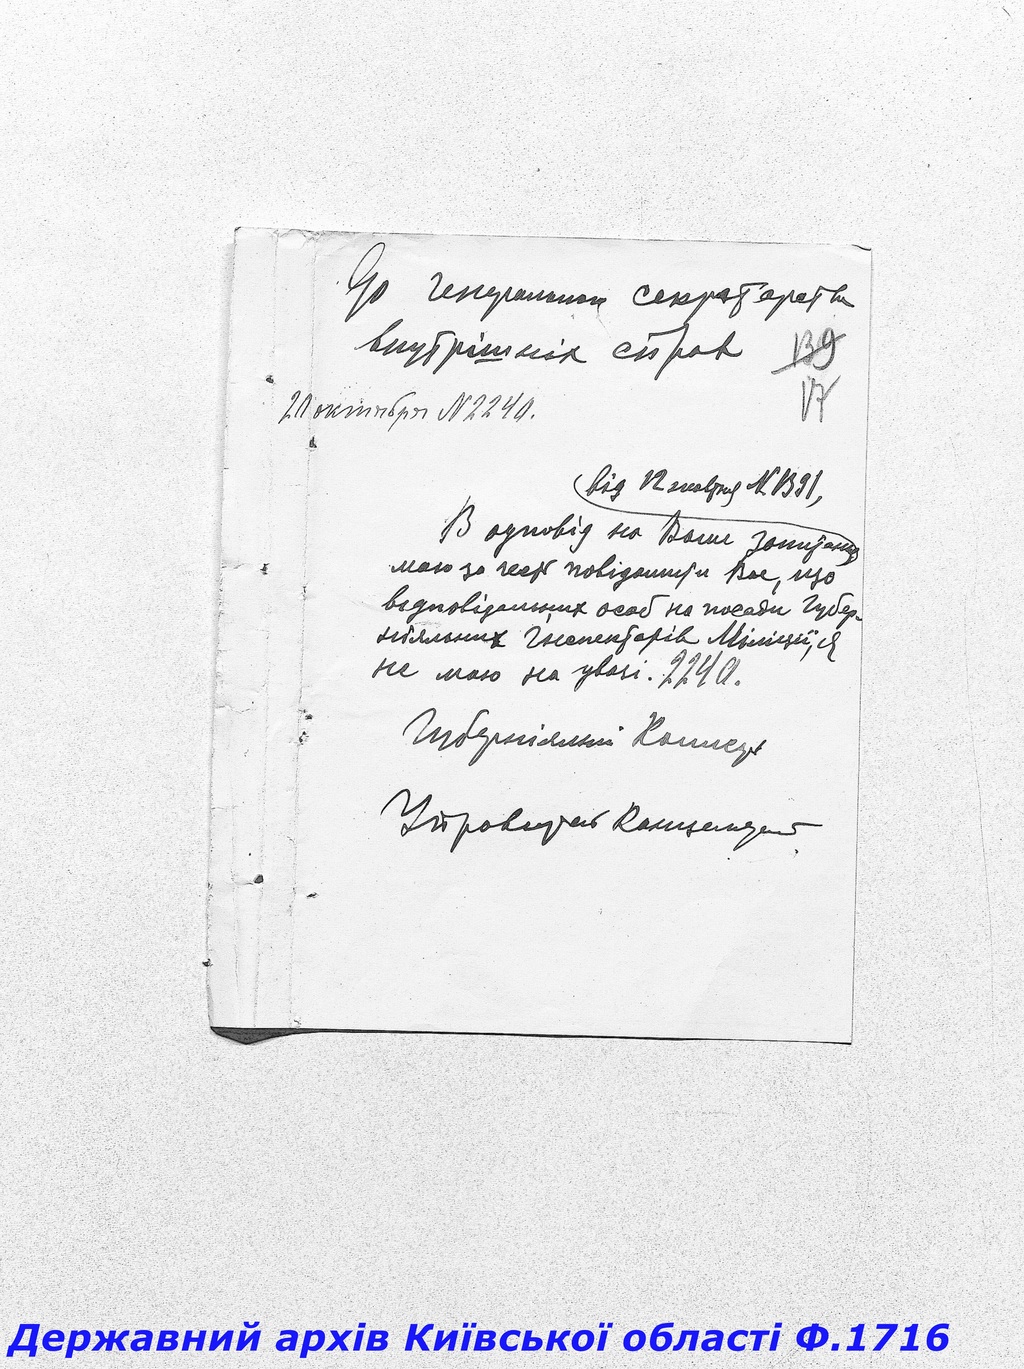 До Генерального Секретарства
внутрішніх справ
139
17
21 октября N 2240.
від 12 жовтня N 1391,
В одповідь на Ваше запитання
маю за честь повідомити Вас, що
відповідальних осаб на посади Губер-
ніяльних Інспекторів Міліції, я
не маю на увазі. 2240.
Губерніяльний Комисар
Управляющ Канцеляріею
Державний архів Київської області Ф.1716